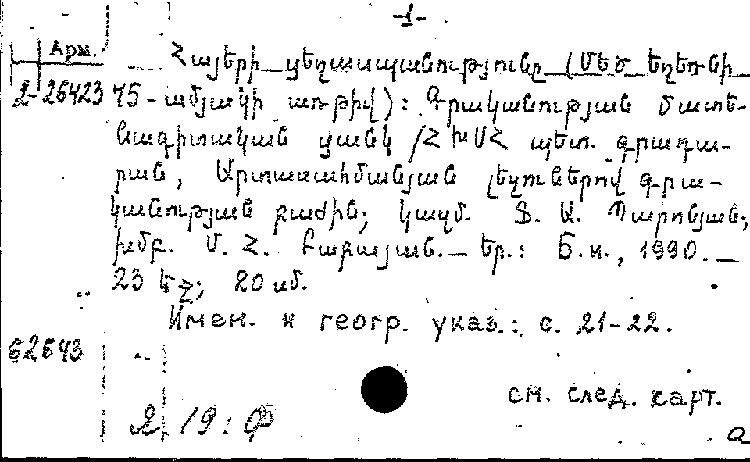 -1-
Арм.
Հայերի ցեղասպանությունը (Մեծ եղեռնի
2-26423 75-ամյակի առթիվ): Գրականության մատե-
նագիտական ցանկ /ՀԽՍՀ պետ. գրադա-
րան, Արտասահմանյան լեզուներով գրա-
կանության բաժին; կազմ. Տ. Ա. Պարոնյան;
խմբ. Մ. Հ. Բաբայան.— Եր.: Б.и., 1990.—
23 եջ; 20 սմ.
Имен. и геогр. указ.: с. 21-22.
62643
см. след. карт.
2 19: Ф
а